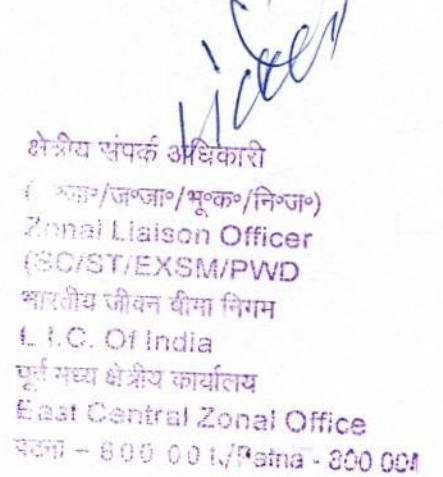 क्षेत्रीय संपर्क अधिकारी
/ज॰जा॰/भू॰क॰/नि॰ज॰)
Zonal Liaison Officer
(SC/ST/EXSM/PWD
भारतीय जीवन बीमा निगम
L.I.C. Of India
पूर्व मध्य क्षेत्रीय कार्यालय
East Central Zonal Office
पटना - 800 001/Patna - 800 001